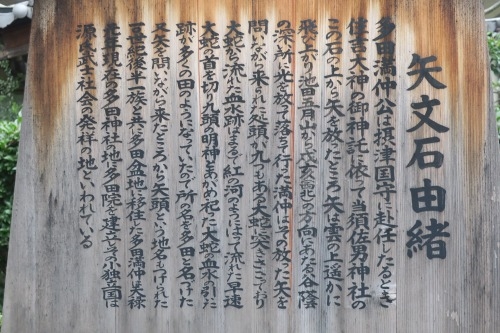 矢文石由緒
多田満仲公は摂津国守に赴任したるとき
住吉大神の御神託に依って当須佐男神社の
この石の上から矢を放ったところ矢は雲の上遥かに
飛び上がり池田五月山から戌亥の方向にあたる谷陰
の深い所に光を放って落ちて行った満仲はその放った矢を
問いながら来られた処頭が九つもある大蛇に突きささっており
大蛇から流れた血水跡はまるで紅の河のようになって流れた早速
大蛇の首を切り九頭の明神とあがめ祀った大蛇の血水の引いた
跡が多くの田のようになっていたので所の名を多田と名づけた
又矢を問いながら来たところから矢問という地名もつけられた
十世紀後半一族と共に多田盆地に移住した多田満仲は天禄
元年現在の多田神社の地に多田院を建てその小独立国は
源氏武士社会の発祥の地といわれている